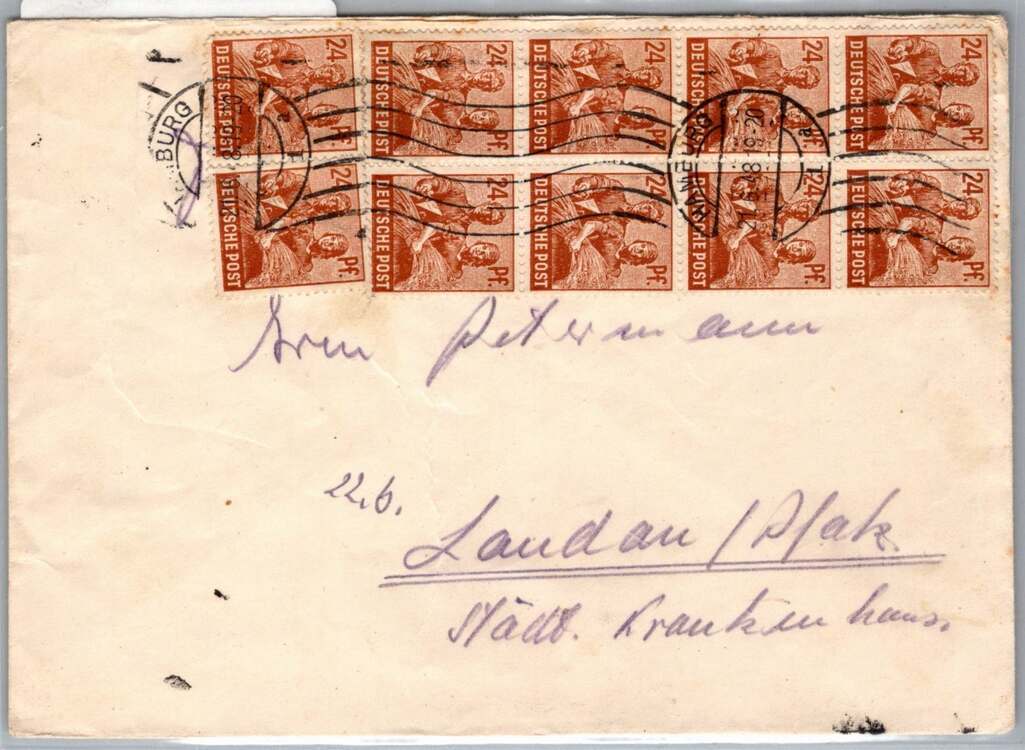 24 Pf. DEUTSCHE POST
24 Pf. DEUTSCHE POST
24 Pf. DEUTSCHE POST
24 Pf. DEUTSCHE POST
24 Pf. DEUTSCHE POST
24 Pf. DEUTSCHE POST
24 Pf. DEUTSCHE POST
24 Pf. DEUTSCHE POST
24 Pf. DEUTSCHE POST
24 Pf. DEUTSCHE POST
BURG
a
1
a
1
Herrn Petermann
22b.
Landau / Pfalz.
Städt. Krankenhaus.